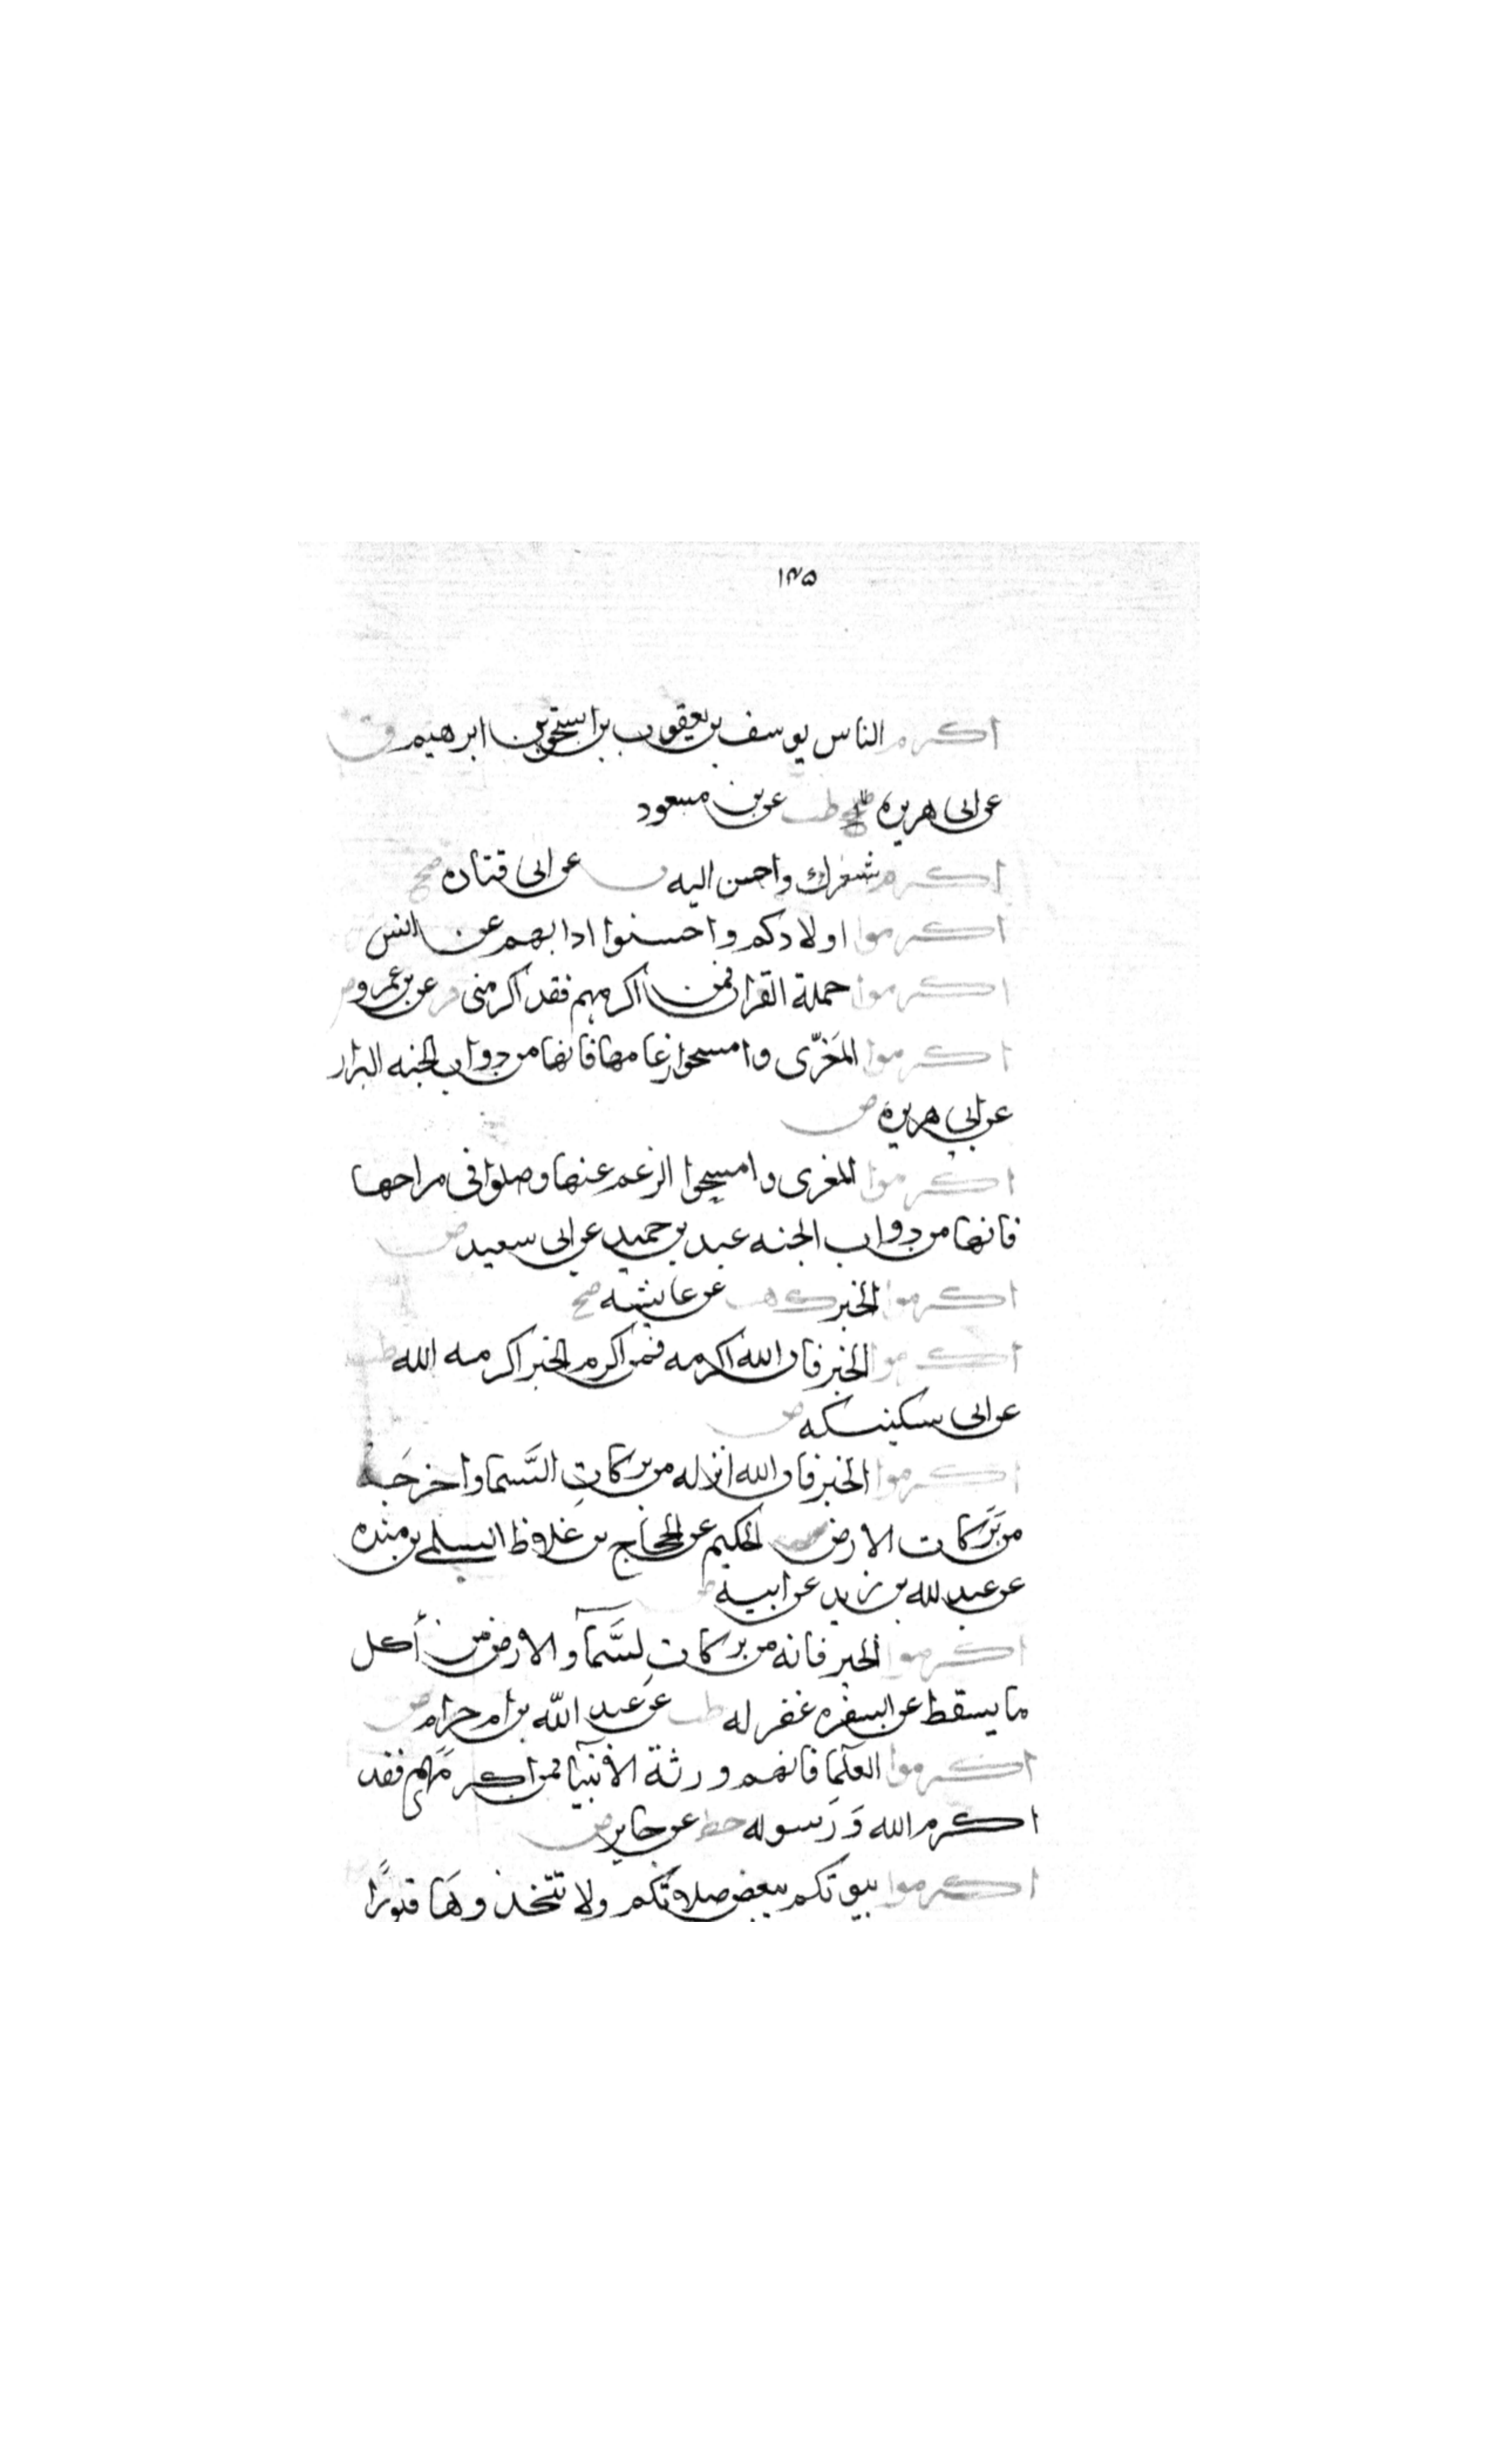 ١٣٥
اكرم الناس يوسف بن يعقوب بن اسحق بن ابرهيم ق
عن ابى هريره طب عن بن مسعود
اكرم شعرك واحسن اليه ن عن ابى قتاده صح
اكرموا اولادكم واحسنوا ادابهم عن انس
اكرموا حملة القران فمن اكرمهم فقد اكرمنى فر عن بن عمرو
اكرموا المعزى وامسحوا رغامها فانها من دواب الجنه البزار
عن ابى هريره ض
اكرموا المعزى وامسحوا الرغم عنها وصلوا فى مراحها
فانها من دواب الجنه عبد بن حميد عن ابى سعيد ض
اكرموا الخبز ك هب عن عايشه صح
اكرموا الخبز فان الله اكرمه فمن اكرم الخبز اكرمه الله طب
عن ابى سكينه ض
اكرموا الخبز فان الله انزله من بركات السَّما واخرجَه
من بَرَكات الارض الحكيم عن الحجاج بن علاط السلمى بن منده
عن عبد لله بن زيد عن ابيه
اكرموا الخبز فانه من بركات السَّمآ والارض من أكل
ما يسقط عن السفره غفر له طب عن عبد الله بن ام حرام ض
اكرموا العلمآ فانهم ورثة الانبيآ فمن اكرمهم فقد
اكرم الله وَرَسوله خط عن جابر ض
اكرموا بيوتكم ببعض صلاتكم ولا تتخذوهَا قبورًا